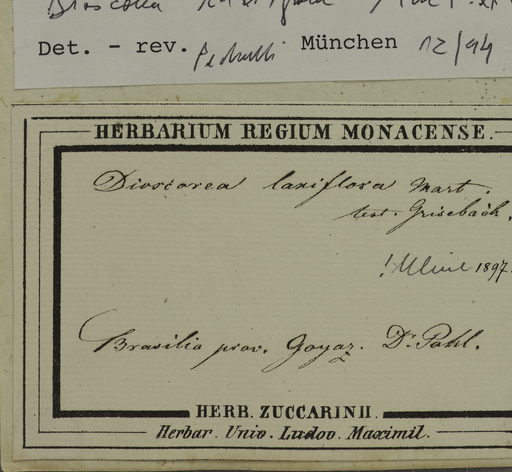 Dioscorea
Det. - rev. Pedralli München 12/94
HERBARIUM REGIUM MONACENSE.
Dioscorea laxiflora Mart.
test. Grisebach.
! Uline 1897.
Brasilia prov. Goyaz. Dr. Pohl.
HERB. ZUCCARINII.
Herbar. Univ. Ludov. Maximil.